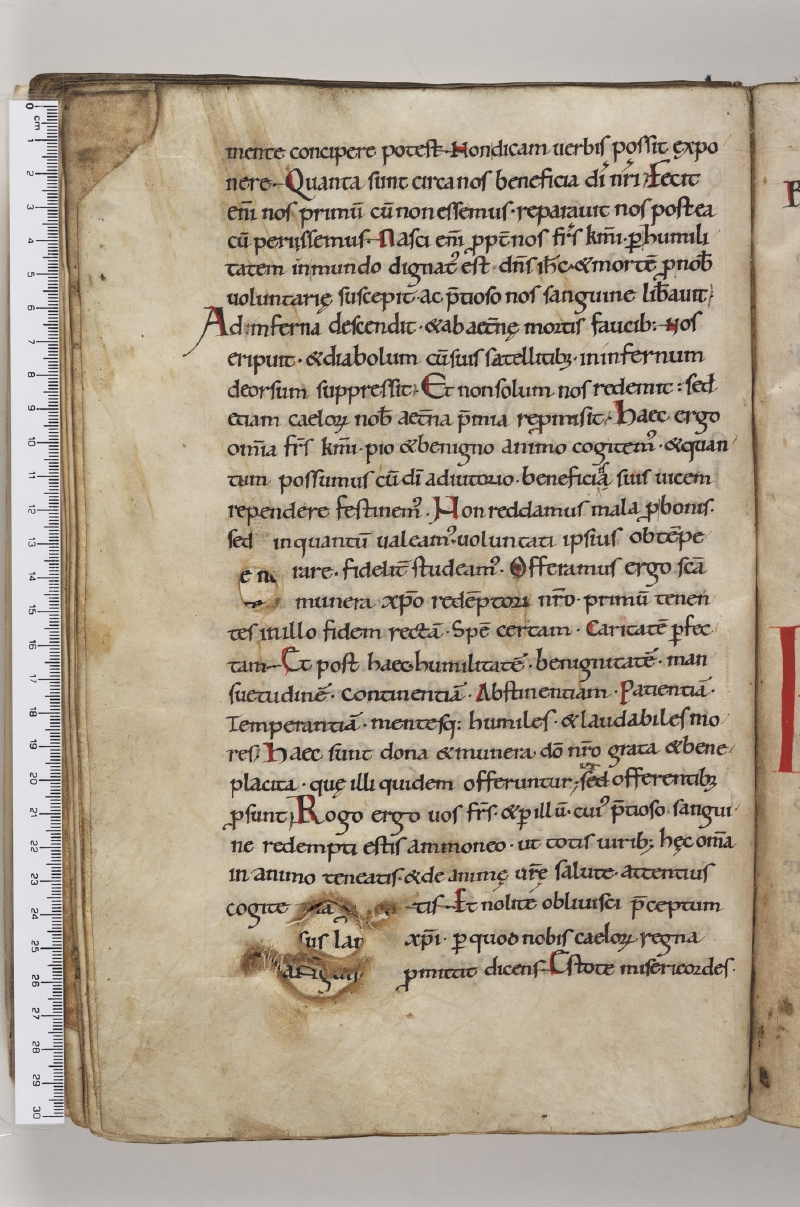 mente concipere potest. Non dicam uerbis possit expo
nere. Quanta sunt circa nos beneficia di nri. Fecit
eni nos primū cū non essemus. reparauit nos postea
cū perissemus. Nasci eni ꝓpt nos frs kmi. ꝑ humili
tatem in mundo dignat᾽ est dns ihc. & mortē ꝓ nob
uoluntarię suscepit. ac p̄tioso nos sanguine lib̄auit;
Ad inferna descendit. & ab aet̄nę mortis faucib: nos
eripuit. & diabolum cū suis satellitibȝ. in infernum
deorsum suppressit. Et non solum nos redemit: sed
etiam caeloꝝ nob aet̄na p̄mia repmisit. Haec ergo
om̄ia frs kmi. pio & benigno animo cogitem᾽. & quan
tum possumus cū di adiutorio. beneficiis suis uicem
rependere festinem᾽. Non reddamus mala ꝓ bonis.
sed in quantū ualeam᾽. uoluntati ipsius obtēpe
rare. fidelit̄ studeam᾽. Offeramus ergo scā
munera xp̄o redēptori nr̄o. primū tenen
tes in illo fidem rectā. Spē certam. Caritatē ꝑfec
tam. Et post haec humilitatē. benignitatē. man
suetudinē. Continentiā. Abstinentiam. Patientiā.
Temperantiā. mentesq; humiles. & laudabiles mo
res. Haec sunt dona & munera dō nr̄o grata & bene
placita. quę illi quidem offeruntur; sed offerentibȝ
ꝓsunt; Rogo ergo uos frs & ꝑ illū. cui᾽ p̄tioso sangui
ne redempti estis ammoneo. ut totis uirib; hęc om̄a
in animo teneatis. & de animę ur̄e salute. attentius
cogite tis. Et nolite obliuisci p̄ceptum
xp̄i. ꝑ quod nobis caeloꝝ regna
ꝓmittit dicens. Estote misericordes.